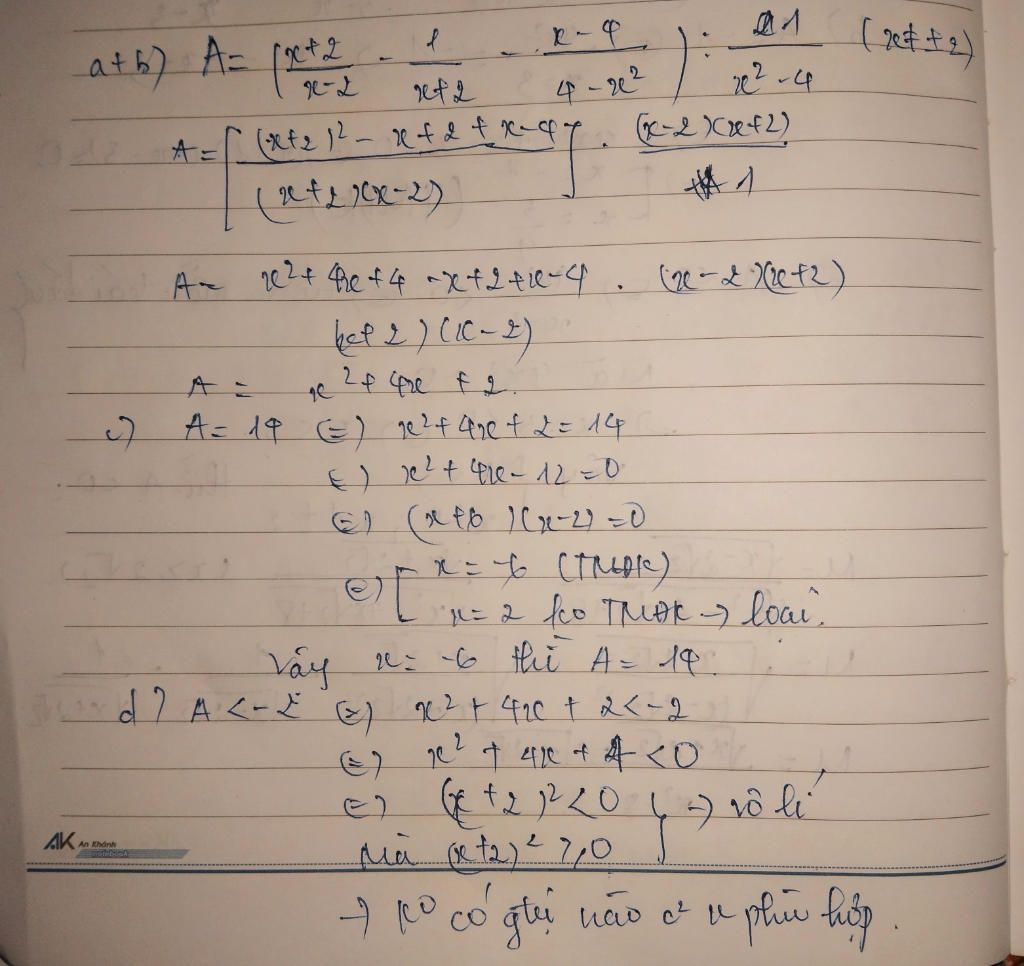 a+b) A = (x+2/x-2 - 1/x+2 - x-4/4-x²) : 1/x²-4 (x≠±2)
A = [(x+2)² - x+2+x-4/(x+2)(x-2)] . (x-2)(x+2)/1
A = x²+4x+4-x+2+x-4/(x+2)(x-2) . (x-2)(x+2)
A = x²+4x+2.
c) A = 14 (=) x²+4x+2 = 14
(=) x²+4x-12 = 0
(=) (x+6)(x-2) = 0
(=) [ x = -6 (TMĐK)
x = 2 ko TMĐK → loại.
Vậy x = -6 thì A = 14.
d) A < -2 (=) x²+4x+2 < -2
(=) x²+4x+4 < 0
(=) (x+2)² < 0 } → vô lí
Mà (x+2)² ≥ 0
AK An Khánh
→ ko có gtrị nào c² x phù hợp.